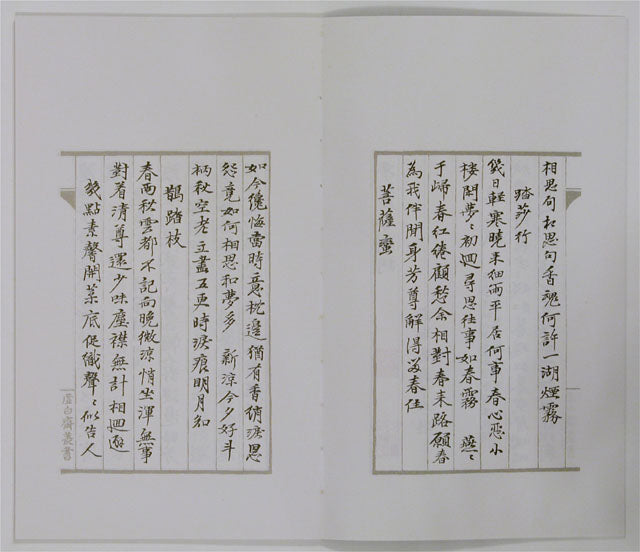 相思句相思句香魂何許一湖煙霧
踏莎行
幾日輕寒曉來細雨平居何事春心惡小
樓閒夢〻初迴尋思往事如春霧 蕪〻
于歸春紅倦顧愁余相對春來路願春
為我伴閒身芳尊解得留春住
菩薩蠻
如今纔悔當時意枕邊猶有香綃淚恩
怨竟如何相思和夢多 新涼今夕好斗
柄秋空老立盡五更時淚痕明月知
鵲踏枝
春雨秋雲都不記向晚微涼悄坐渾無事
對着清尊還少味塵襟無計相迴避
幾點素馨開葉底促織聲〻似告人
虛白齋叢書